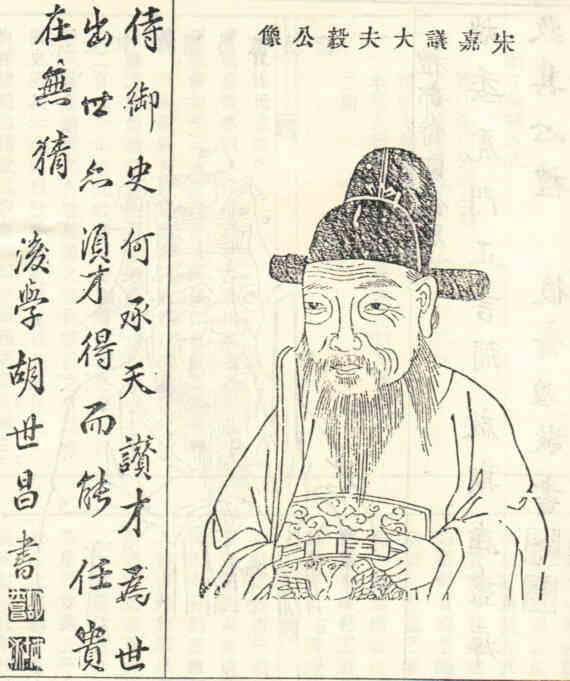 宋嘉議大夫毅公像
侍御史何承天讚才爲世
出世亦須才得而能任貴
在無猜
後學胡世昌書